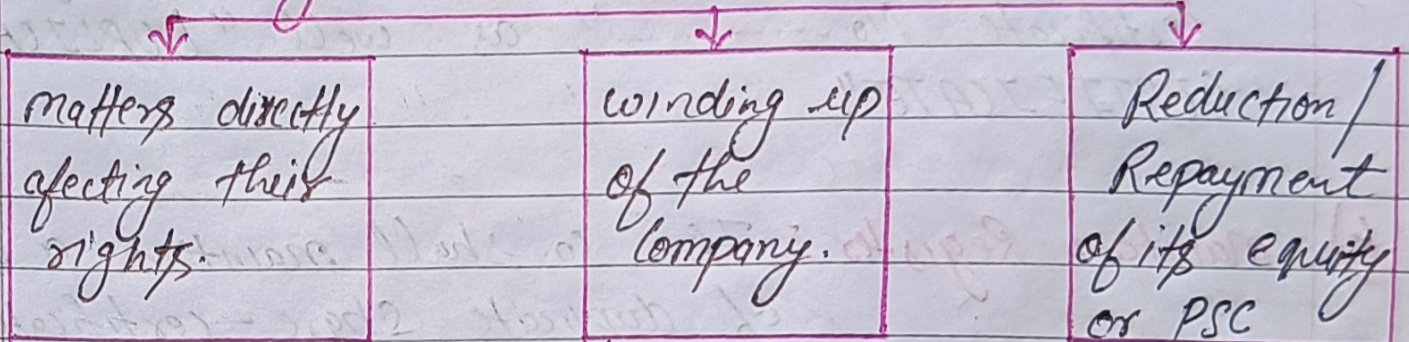 matters directly
afecting their
rights.
winding up
of the
Company.
Reduction/
Repayment
of its equity
or PSC